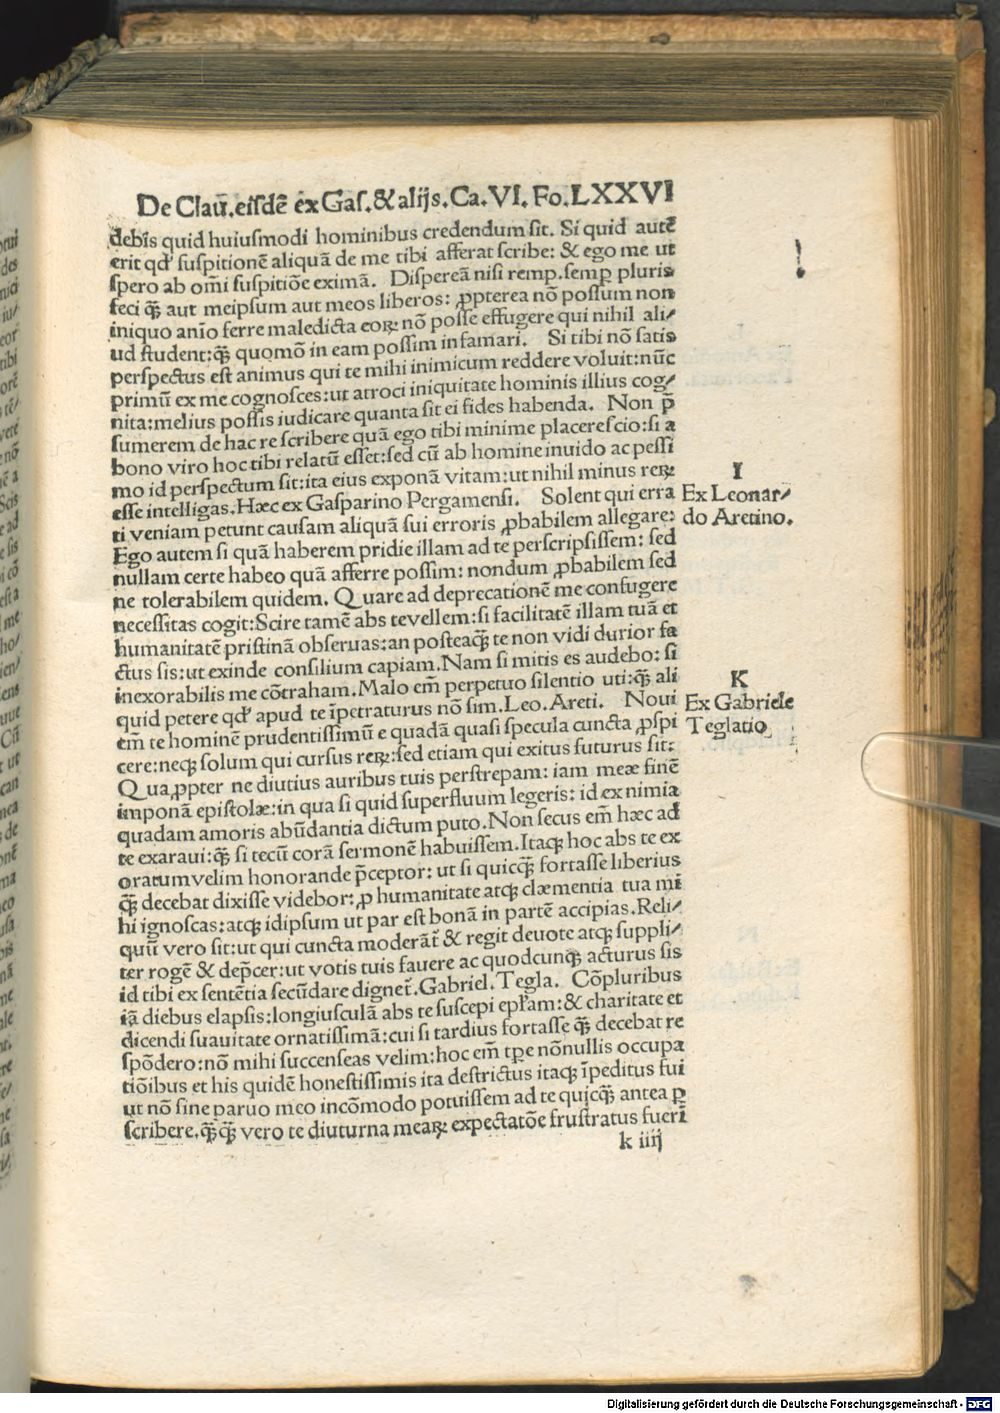 De Claū.eisdē ex Gas.& alijs.Ca.VI.Fo.LXXVI
debis quid huiusmodi hominibus credendum sit. Si quid autē
erit qd' suspitionē aliquā de me tibi afferat scribe: & ego me ut
spero ab om̄i suspitiōe eximā. Dispereā nisi remp.semp̱ pluris
feci q̄ꝫ aut meipsum aut meos liberos: ꝓpterea nō possum non
iniquo anīo ferre maledicta eoꝝ: nō posse effugere qui nihil ali/
ud student:q̄ꝫ quomō in eam possim infamari. Si tibi nō satis
perspectus est animus qui te mihi inimicum reddere voluit:nūc
primū ex me cognosces:ut atroci iniquitate hominis illius cog/
nita:melius possis iudicare quanta sit ei fides habenda. Non p̄
sumerem de hac re scribere quā ego tibi minime placere scio:si a
bono viro hoc tibi relatū esset:sed cū ab homine inuido ac pessi
mo id perspectum sit:ita eius exponā vitam:ut nihil minus reꝝ
esse intelligas.Hæc ex Gasparino Pergamensi. Solent qui erra
ti veniam petunt causam aliquā sui erroris ꝓbabilem allegare:
Ego autem si quā haberem pridie illam ad te perscripsissem: sed
nullam certe habeo quā afferre possim: nondum ꝓbabilem sed
ne tolerabilem quidem. Quare ad deprecationē me confugere
necessitas cogit:Scire tamē abs te vellem:si facilitatē illam tuā et
humanitatē pristinā obseruas:an posteaq̄ꝫ te non vidi durior fa
ctus sis:ut exinde consilium capiam.Nam si mitis es audebo: si
inexorabilis me cōtraham.Malo em̄ perpetuo silentio uti:q̄ꝫ ali
quid petere qd' apud te īpetraturus nō sim.Leo.Areti. Noui
em̄ te hominē prudentissimū e quadā quasi specula cuncta ꝓspi
cere:neqꝫ solum qui cursus reꝝ:sed etiam qui exitus futurus sit:
Quaꝓpter ne diutius auribus tuis perstrepam: iam meæ finē
imponā epistolæ:in qua si quid superfluum legeris: id ex nimia
quadam amoris abūdantia dictum puto.Non secus em̄ hæc ad
te exaraui:q̄ꝫ si tecū corā sermonē habuissem.Itaqꝫ hoc abs te ex
oratum velim honorande p̄ceptor: ut si quicq̄ꝫ fortasse liberius
q̄ꝫ decebat dixisse videbor:ꝓ humanitate atqꝫ clæmentia tua mi
hi ignoscas:atqꝫ idipsum ut par est bonā in partē accipias.Reli/
quū vero sit:ut qui cuncta moderāt̄ & regit deuote atqꝫ suppli/
ter rogē & dep̄cer:ut votis tuis fauere ac quodcunqꝫ acturus sis
id tibi ex sentētia secūdare dignet̄.Gabriel.Tegla. Cōpluribus
iā diebus elapsis:longiusculā abs te suscepi epłam:& charitate et
dicendi suauitate ornatissimā:cui si tardius fortasse q̄ꝫ decebat re
spōdero:nō mihi succenseas velim:hoc em̄ tp̱e nōnullis occupa
tiōibus et his quidē honestissimis ita destrictus itaqꝫ īpeditus fui
ut nō sine paruo meo incōmodo potuissem ad te quicq̄ꝫ antea ꝑ
scribere.q̄ꝫq̄ꝫ vero te diuturna meaꝝ expectatōe frustratus fuerī
k iiij
I
Ex Leonar/
do Aretino.
K
Ex Gabriele
Teglatio
Digitalisierung gefördert durch die Deutsche Forschungsgemeinschaft - DFG